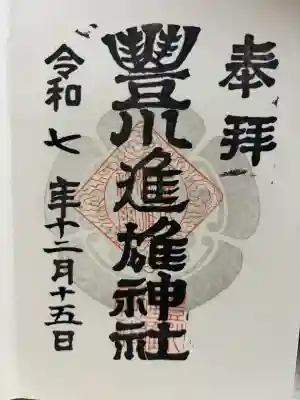 奉拝
豐川進雄神社
令和七年十二月十五日